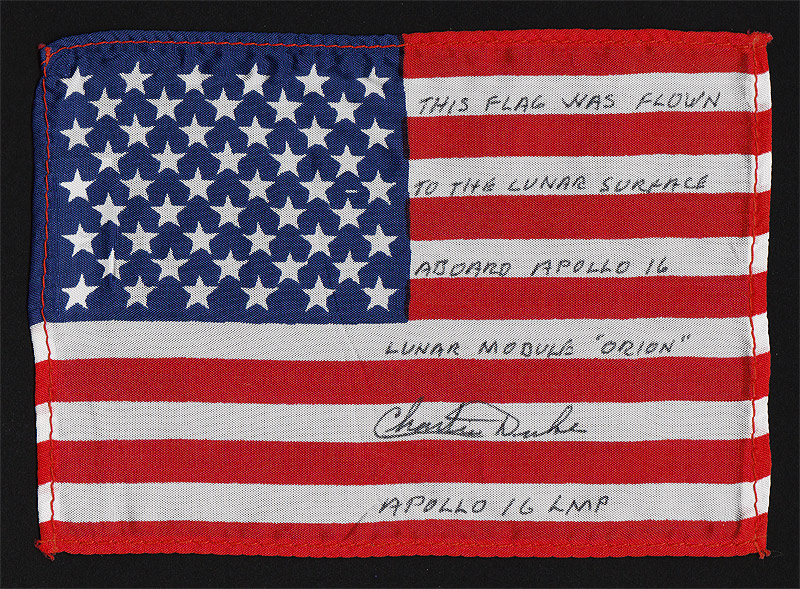 THIS FLAG WAS FLOWN
TO THE LUNAR SURFACE
ABOARD APOLLO 16
LUNAR MODULE "ORION"
Charlie Duke
APOLLO 16 LMP